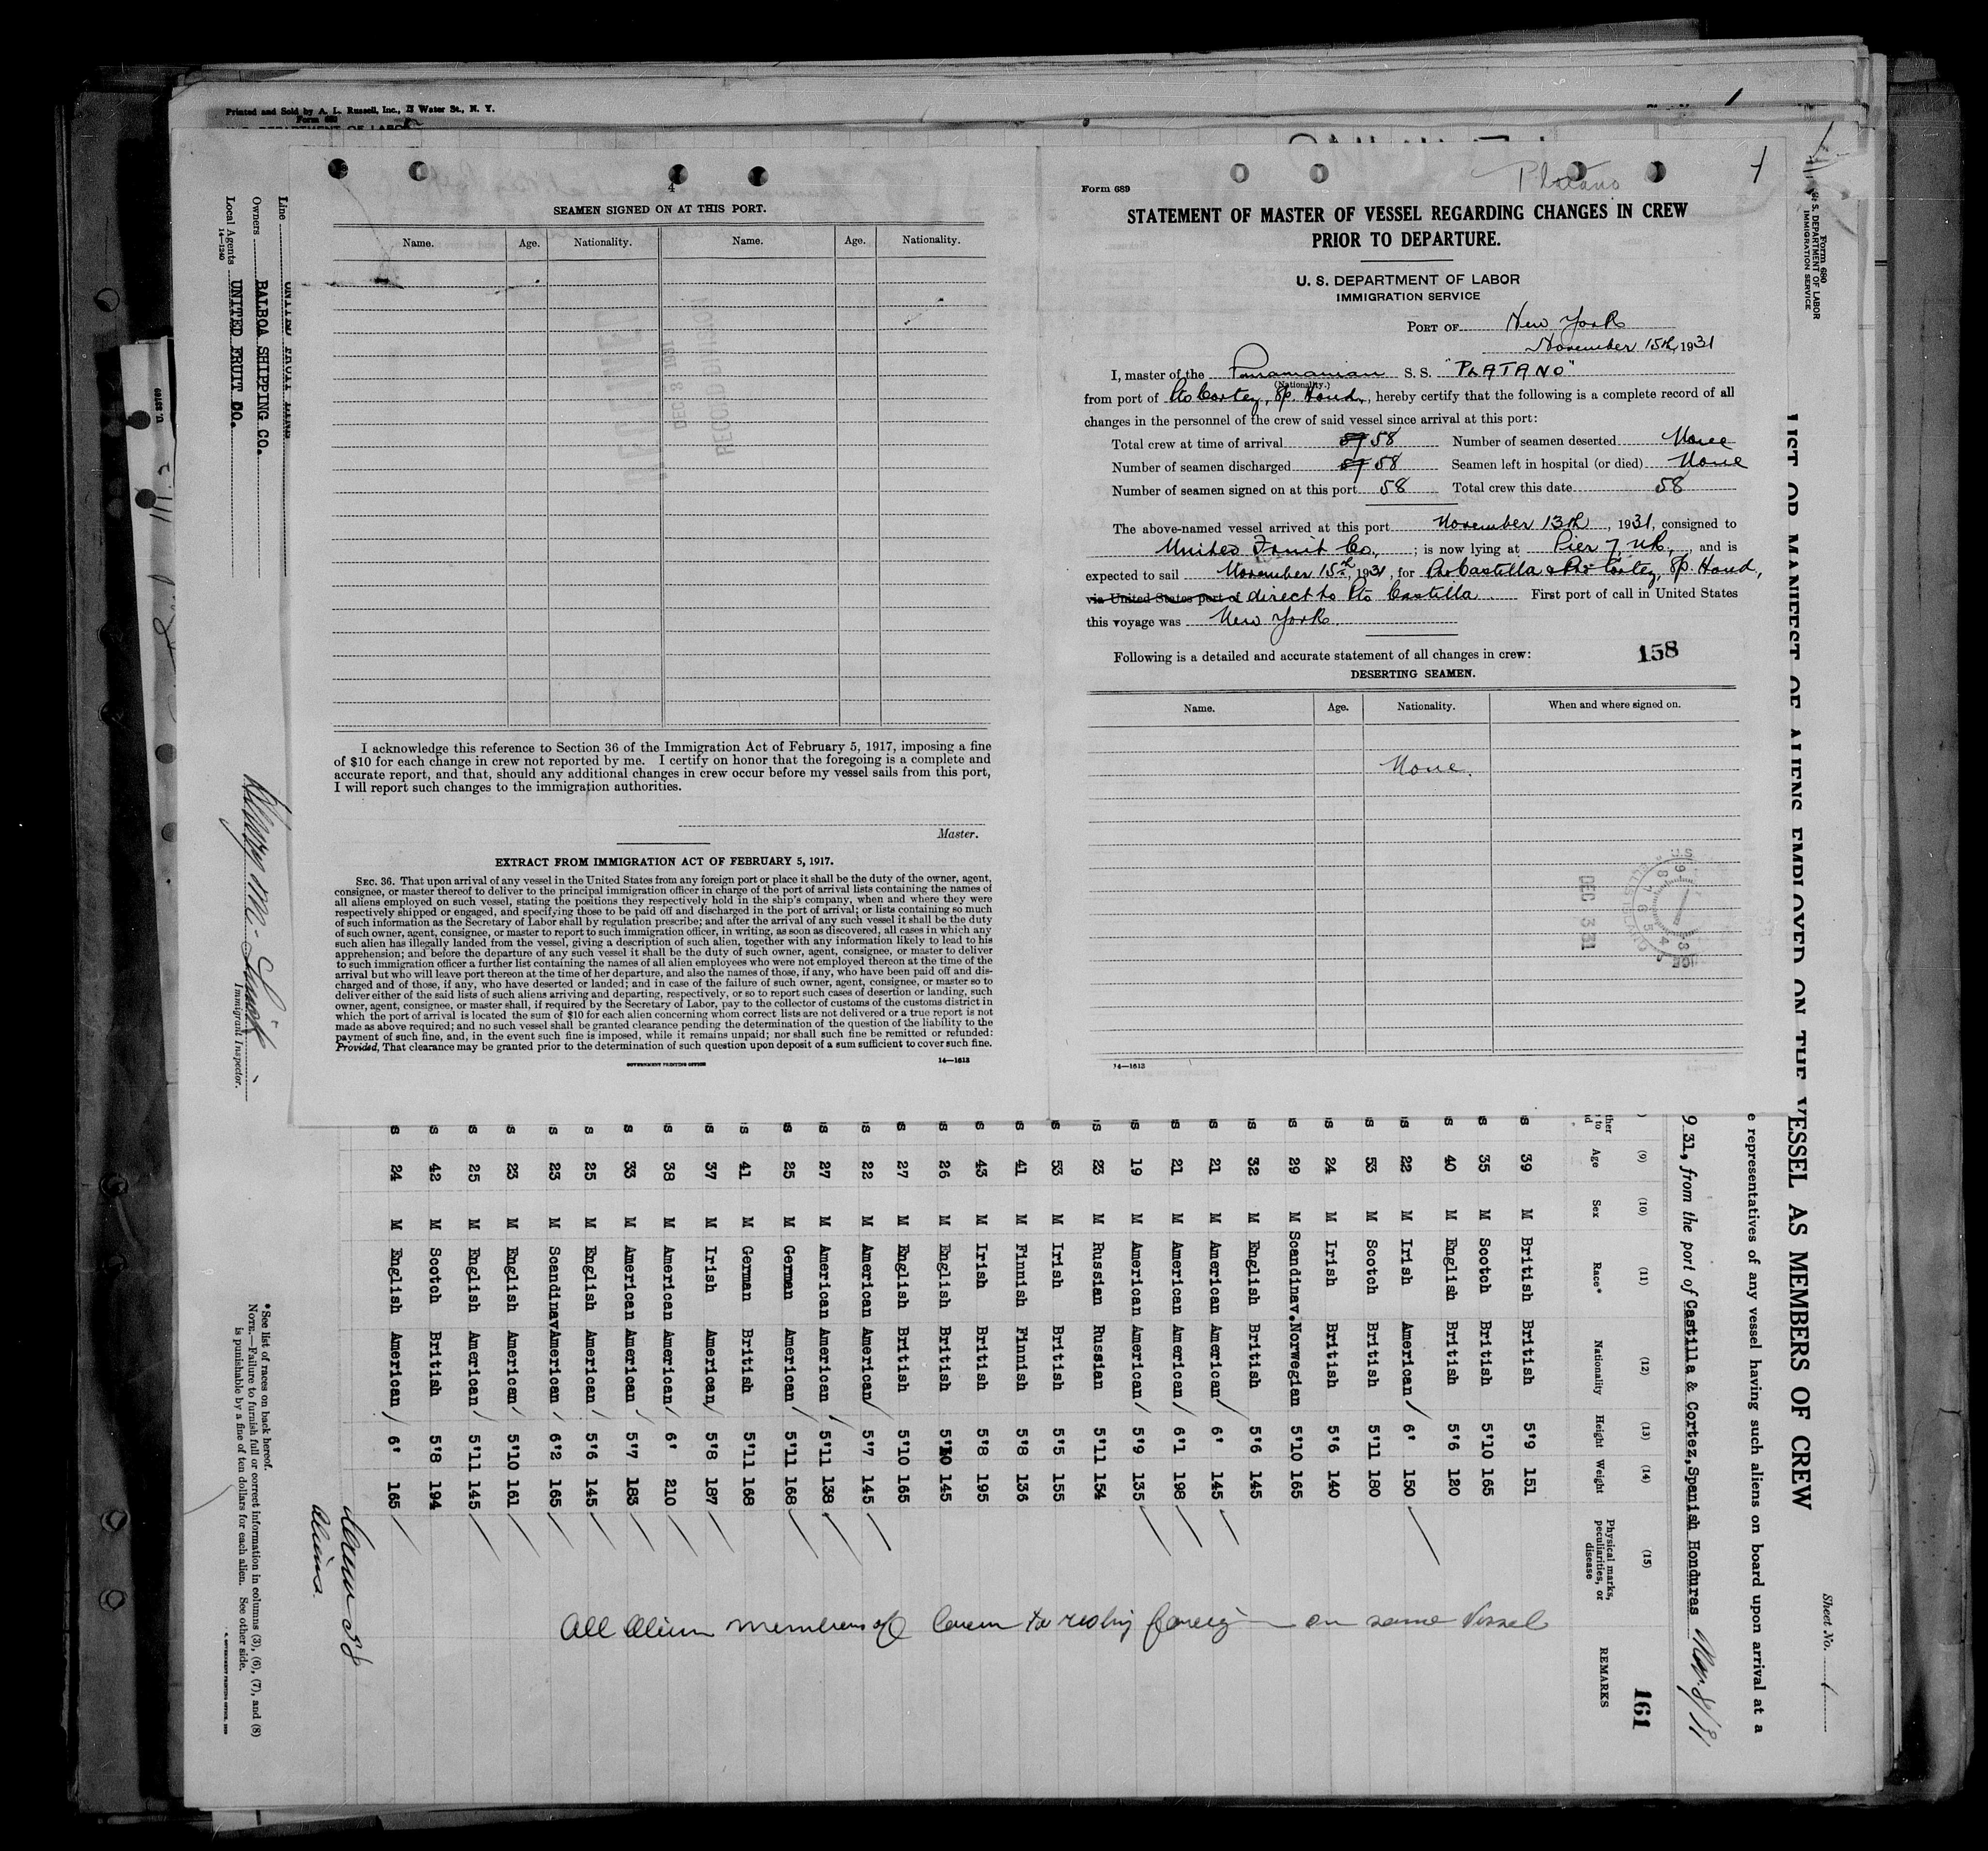 Printed and Sold by A. L. Russell, Inc., Water St., N. Y.
4
SEAMEN SIGNED ON AT THIS PORT.
Name. Age. Nationality. Name. Age. Nationality.
I acknowledge this reference to Section 36 of the Immigration Act of February 5, 1917, imposing a fine
of $10 for each change in crew not reported by me. I certify on honor that the foregoing is a complete and
accurate report, and that, should any additional changes in crew occur before my vessel sails from this port,
I will report such changes to the immigration authorities.
Master.
EXTRACT FROM IMMIGRATION ACT OF FEBRUARY 5, 1917.
SEC. 36. That upon arrival of any vessel in the United States from any foreign port or place it shall be the duty of the owner, agent,
consignee, or master thereof to deliver to the principal immigration officer in charge of the port of arrival lists containing the names of
all aliens employed on such vessel, stating the positions they respectively hold in the ship's company, when and where they were
respectively shipped or engaged, and specifying those to be paid off and discharged in the port of arrival; or lists containing so much
of such information as the Secretary of Labor shall by regulation prescribe; and after the arrival of any such vessel it shall be the duty
of such owner, agent, consignee, or master to report to such immigration officer, in writing, as soon as discovered, all cases in which any
such alien has illegally landed from the vessel, giving a description of such alien, together with any information likely to lead to his
apprehension; and before the departure of any such vessel it shall be the duty of such owner, agent, consignee, or master to deliver
to such immigration officer a further list containing the names of all alien employees who were not employed thereon at the time of the
arrival but who will leave port thereon at the time of her departure, and also the names of those, if any, who have been paid off and dis-
charged and of those, if any, who have deserted or landed; and in case of the failure of such owner, agent, consignee, or master so to
deliver either of the said lists of such aliens arriving and departing, respectively, or so to report such cases of desertion or landing, such
owner, agent, consignee, or master shall, if required by the Secretary of Labor, pay to the collector of customs of the customs district in
which the port of arrival is located the sum of $10 for each alien concerning whom correct lists are not delivered or a true report is not
made as above required; and no such vessel shall be granted clearance pending the determination of the question of the liability to the
payment of such fine, and, in the event such fine is imposed, while it remains unpaid; nor shall such fine be remitted or refunded:
Provided, That clearance may be granted prior to the determination of such question upon deposit of a sum sufficient to cover such fine.
GOVERNMENT PRINTING OFFICE 14—1613
Platano
Form 689
STATEMENT OF MASTER OF VESSEL REGARDING CHANGES IN CREW
PRIOR TO DEPARTURE.
U. S. DEPARTMENT OF LABOR
IMMIGRATION SERVICE
PORT OF New York
November 15th, 1931
I, master of the Panamanian S. S. "PLATANO"
(Nationality.)
from port of Pto Cortez, Sp. Hond., hereby certify that the following is a complete record of all
changes in the personnel of the crew of said vessel since arrival at this port:
Total crew at time of arrival 58 Number of seamen deserted None
Number of seamen discharged 58 Seamen left in hospital (or died) None
Number of seamen signed on at this port 58 Total crew this date 58
The above-named vessel arrived at this port November 13th, 1931, consigned to
United Fruit Co.,; is now lying at Pier 7, NR., and is
expected to sail November 15th, 1931, for Pto Castilla & Pto Cortez, Sp. Hond,
via United States port of direct to Pto Castilla First port of call in United States
this voyage was New York.
Following is a detailed and accurate statement of all changes in crew: 158
DESERTING SEAMEN.
Name. Age. Nationality. When and where signed on.
None.
DEC 3 31
14—1613
Form 680
U. S. DEPARTMENT OF LABOR
IMMIGRATION SERVICE
Sheet No. 1
LIST OR MANIFEST OF ALIENS EMPLOYED ON THE VESSEL AS MEMBERS OF CREW
e representatives of any vessel having such aliens on board upon arrival at a
9 31, from the port of Castilla & Cortez, Spanish Honduras
161
(9) (10) (11) (12) (13) (14) (15)
Age Sex Race* Nationality Height Weight Physical marks, peculiarities, or disease REMARKS
39 M British British 5'9 151
35 M Scotch British 5'10 165
40 M English British 5'6 120
22 M Irish American 6' 150
53 M Scotch British 5'11 180
24 M Irish British 5'6 140
29 M Scandinav. Norwegian 5'10 165
32 M English British 5'6 145
21 M American American 6' 145
21 M American American 6'1 198
19 M American American 5'9 135
23 M Russian Russian 5'11 154
53 M Irish British 5'5 155
41 M Finnish Finnish 5'8 136
43 M Irish British 5'8 195
26 M English British 5'10 145
27 M English British 5'10 165
22 M American American 5'7 145
27 M American American 5'11 138
25 M German American 5'11 168
41 M German British 5'11 168
37 M Irish American 5'8 187
38 M American American 6' 210
33 M American American 5'7 183
25 M English American 5'6 145
23 M Scandinav American 6'2 165
23 M English American 5'10 161
25 M English American 5'11 145
42 M Scotch British 5'8 194
24 M English American 6' 165
All Alien members of Crew to reship foreign on same Vessel
Aliens
Line UNITED FRUIT LINE
Owners BALBOA SHIPPING CO.
Local Agents UNITED FRUIT CO.
14—1240
Immigrant Inspector.
*See list of races on back hereof.
NOTE.—Failure to furnish full or correct information in columns (3), (6), (7), and (8)
is punishable by a fine of ten dollars for each alien. See other side.